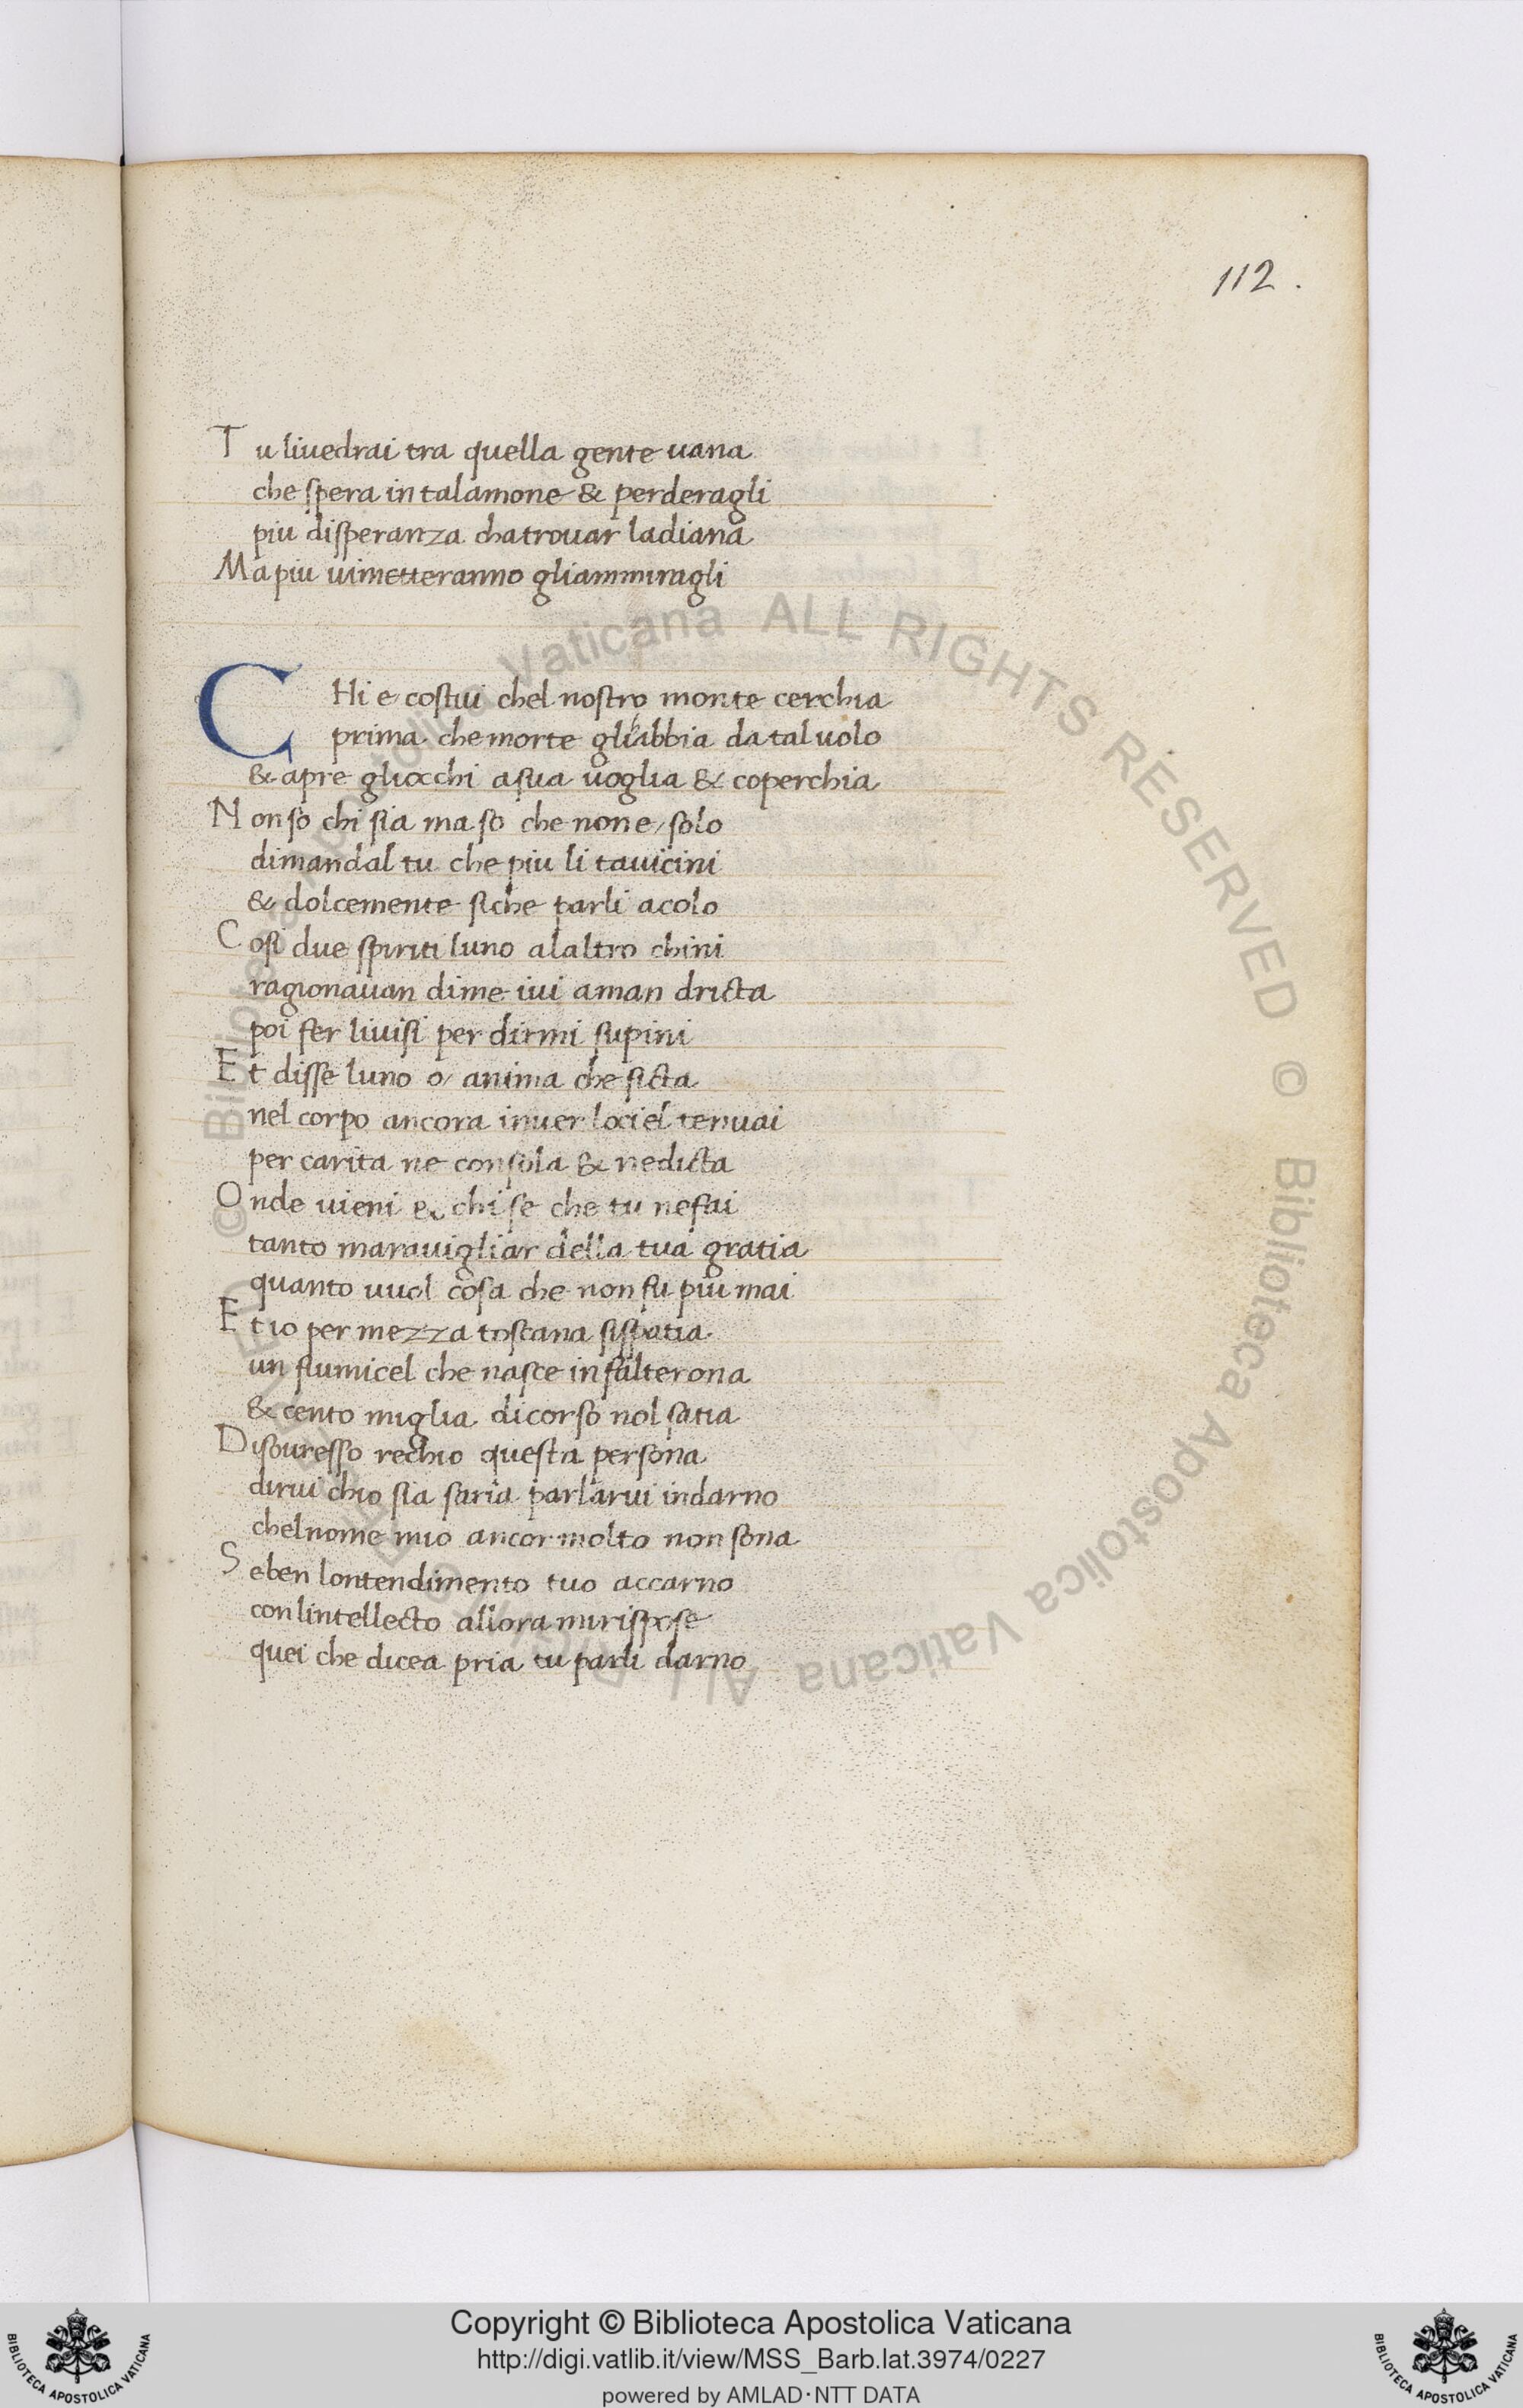 112.
Tu livedrai tra quella gente uana
che spera in talamone & perderagli
piu disperanza chatrouar ladiana
Ma piu uimetteranno gliammiragli
CHi e costui chel nostro monte cerchia
prima che morte glihabbia da tal uolo
& apre gliocchi asua uoglia & coperchia
Non so chi sia ma so che none solo
dimandal tu che piu li tauicini
& dolcemente siche parli acolo
Cosi due spiriti luno alaltro chini
ragionauan dime iui aman dricta
poi fer liuisi per dirmi supini
Et disse luno o anima che ficta
nel corpo ancora inuer lociel tenuai
per carita ne consola & nedicta
Onde uieni e chi se che tu nefai
tanto marauigliar della tua gratia
quanto uuol cosa che non fu piu mai
Et io per mezza toscana sispatia
un fiumicel che nasce in falterona
& cento miglia dicorso nol satia
Disouresso rechio questa persona
dirui chio sia saria parlarui indarno
chelnome mio ancor molto non sona
Se ben lontendimento tuo accarno
conlintellecto allora mirispose
quei che dicea pria tu parli darno
© Biblioteca Apostolica Vaticana ALL RIGHTS RESERVED © Biblioteca Apostolica Vaticana ALL RIGHTS RESERVED
Copyright © Biblioteca Apostolica Vaticana
http://digi.vatlib.it/view/MSS_Barb.lat.3974/0227
powered by AMLAD·NTT DATA
BIBLIOTECA APOSTOLICA VATICANA
BIBLIOTECA APOSTOLICA VATICANA